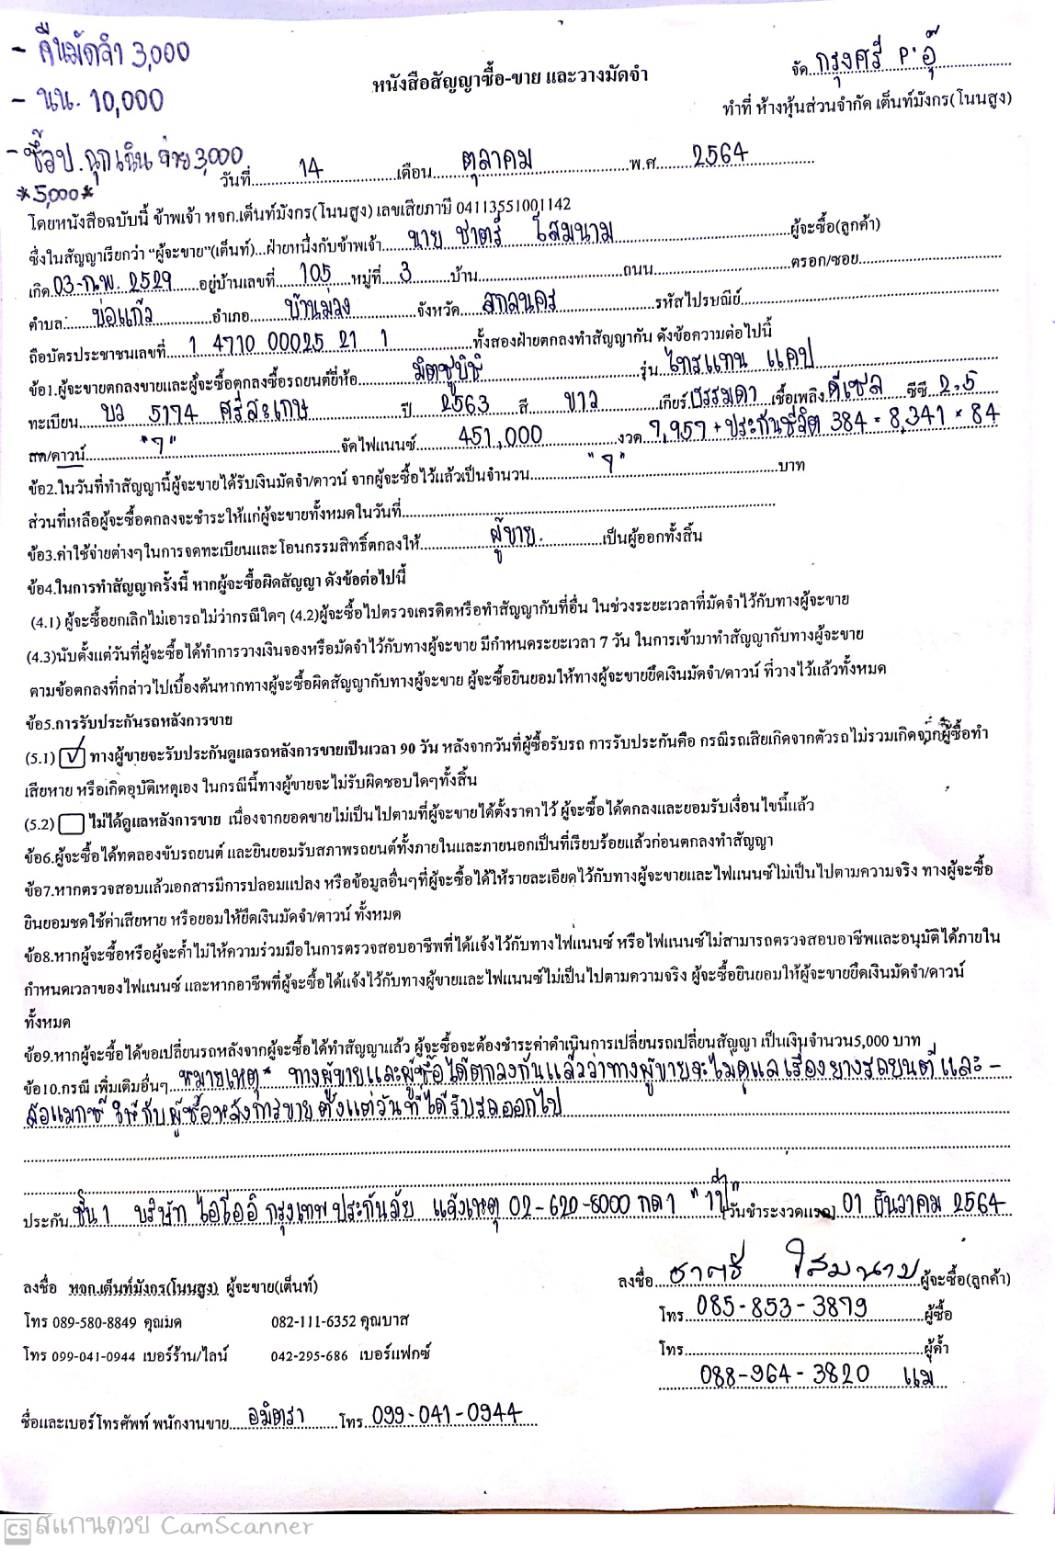 - คืนมัดจำ 3,000
จัด กรุงศรี P'อุ๊
หนังสือสัญญาซื้อ-ขาย และวางมัดจำ
- นน. 10,000
ทำที่ ห้างหุ้นส่วนจำกัด เต็นท์มังกร(โนนสูง)
- ซื้อป.ฉุกเฉิน จ่าย 3,000
*5,000*
วันที่ 14 เดือน ตุลาคม พ.ศ. 2564
โดยหนังสือฉบับนี้ ข้าพเจ้า หจก.เต็นท์มังกร(โนนสูง) เลขเสียภาษี 04113551001142
ซึ่งในสัญญาเรียกว่า "ผู้จะขาย"(เต็นท์)...ฝ่ายหนึ่งกับข้าพเจ้า นาย ชาตรี โสมนาม ผู้จะซื้อ(ลูกค้า)
เกิด 03-ก.พ. 2529 อยู่บ้านเลขที่ 105 หมู่ที่ 3 บ้าน ถนน ตรอก/ซอย
ตำบล บ่อแก้ว อำเภอ บ้านม่วง จังหวัด สกลนคร รหัสไปรษณีย์
ถือบัตรประชาชนเลขที่ 1 4710 00025 21 1 ทั้งสองฝ่ายตกลงทำสัญญากัน ดังข้อความต่อไปนี้
ข้อ1.ผู้จะขายตกลงขายและผู้จะซื้อตกลงซื้อรถยนต์ยี่ห้อ มิตซูบิชิ รุ่น ไทรแทน แคป
ทะเบียน บว 5174 ศรีสะเกษ ปี 2563 สี ขาว เกียร์ ธรรมดา เชื้อเพลิง ดีเซล ซีซี 2.5
สด/ดาวน์ "7" จัดไฟแนนซ์ 451,000 งวด 7,957 + ประกันชีวิต 384 = 8,341 × 84
ข้อ2.ในวันที่ทำสัญญานี้ผู้จะขายได้รับเงินมัดจำ/ดาวน์ จากผู้จะซื้อไว้แล้วเป็นจำนวน "7" บาท
ส่วนที่เหลือผู้จะซื้อตกลงจะชำระให้แก่ผู้จะขายทั้งหมดในวันที่
ข้อ3.ค่าใช้จ่ายต่างๆในการจดทะเบียนและโอนกรรมสิทธิ์ตกลงให้ ผู้ขาย. เป็นผู้ออกทั้งสิ้น
ข้อ4.ในการทำสัญญาครั้งนี้ หากผู้จะซื้อผิดสัญญา ดังข้อต่อไปนี้
(4.1) ผู้จะซื้อยกเลิกไม่เอารถไม่ว่ากรณีใดๆ (4.2)ผู้จะซื้อไปตรวจเครดิตหรือทำสัญญากับที่อื่น ในช่วงระยะเวลาที่มัดจำไว้กับทางผู้จะขาย
(4.3)นับตั้งแต่วันที่ผู้จะซื้อได้ทำการวางเงินจองหรือมัดจำไว้กับทางผู้จะขาย มีกำหนดระยะเวลา 7 วัน ในการเข้ามาทำสัญญากับทางผู้จะขาย
ตามข้อตกลงที่กล่าวไปเบื้องต้นหากทางผู้จะซื้อผิดสัญญากับทางผู้จะขาย ผู้จะซื้อยินยอมให้ทางผู้จะขายยึดเงินมัดจำ/ดาวน์ ที่วางไว้แล้วทั้งหมด
ข้อ5.การรับประกันรถหลังการขาย
(5.1) ☑ ทางผู้ขายจะรับประกันดูแลรถหลังการขายเป็นเวลา 90 วัน หลังจากวันที่ผู้ซื้อรับรถ การรับประกันคือ กรณีรถเสียเกิดจากตัวรถไม่รวมเกิดจากผู้ซื้อทำ
เสียหาย หรือเกิดอุบัติเหตุเอง ในกรณีนี้ทางผู้ขายจะไม่รับผิดชอบใดๆทั้งสิ้น
(5.2) ☐ ไม่ได้ดูแลหลังการขาย เนื่องจากยอดขายไม่เป็นไปตามที่ผู้จะขายได้ตั้งราคาไว้ ผู้จะซื้อได้ตกลงและยอมรับเงื่อนไขนี้แล้ว
ข้อ6.ผู้จะซื้อได้ทดลองขับรถยนต์ และยินยอมรับสภาพรถยนต์ทั้งภายในและภายนอกเป็นที่เรียบร้อยแล้วก่อนตกลงทำสัญญา
ข้อ7.หากตรวจสอบแล้วเอกสารมีการปลอมแปลง หรือข้อมูลอื่นๆที่ผู้จะซื้อได้ให้รายละเอียดไว้กับทางผู้จะขายและไฟแนนซ์ไม่เป็นไปตามความจริง ทางผู้จะซื้อ
ยินยอมชดใช้ค่าเสียหาย หรือยอมให้ยึดเงินมัดจำ/ดาวน์ ทั้งหมด
ข้อ8.หากผู้จะซื้อหรือผู้จะค้ำไม่ให้ความร่วมมือในการตรวจสอบอาชีพที่ได้แจ้งไว้กับทางไฟแนนซ์ หรือไฟแนนซ์ไม่สามารถตรวจสอบอาชีพและอนุมัติได้ภายใน
กำหนดเวลาของไฟแนนซ์ และหากอาชีพที่ผู้จะซื้อได้แจ้งไว้กับทางผู้ขายและไฟแนนซ์ไม่เป็นไปตามความจริง ผู้จะซื้อยินยอมให้ผู้จะขายยึดเงินมัดจำ/ดาวน์
ทั้งหมด
ข้อ9.หากผู้จะซื้อได้ขอเปลี่ยนรถหลังจากผู้จะซื้อได้ทำสัญญาแล้ว ผู้จะซื้อจะต้องชำระค่าดำเนินการเปลี่ยนรถเปลี่ยนสัญญา เป็นเงินจำนวน5,000 บาท
ข้อ10.กรณี เพิ่มเติมอื่นๆ หมายเหตุ* ทางผู้ขายและผู้ซื้อได้ตกลงกันแล้วว่าทางผู้ขายจะไม่ดูแล เรื่องยางรถยนต์ และ -
ล้อแมกซ์ ให้กับผู้ซื้อหลังการขาย ตั้งแต่วันที่ได้รับรถออกไป
ประกัน ชั้น 1 บริษัท ไอโออิ กรุงเทพ ประกันภัย แจ้งเหตุ 02-620-8000 กด 1 "1ปี" วันชำระงวดแรก 01 ธันวาคม 2564
ลงชื่อ หจก.เต็นท์มังกร(โนนสูง) ผู้จะขาย(เต็นท์)
ลงชื่อ ชาตรี โสมนาม ผู้จะซื้อ(ลูกค้า)
โทร 089-580-8849 คุณมด 082-111-6352 คุณบาส
โทร 085-853-3879 ผู้ซื้อ
โทร 099-041-0944 เบอร์ร้าน/ไลน์ 042-295-686 เบอร์แฟกซ์
โทร ผู้ค้ำ
088-964-3820 แม่
ชื่อและเบอร์โทรศัพท์ พนักงานขาย อมิตรา โทร 099-041-0944
CS สแกนด้วย CamScanner